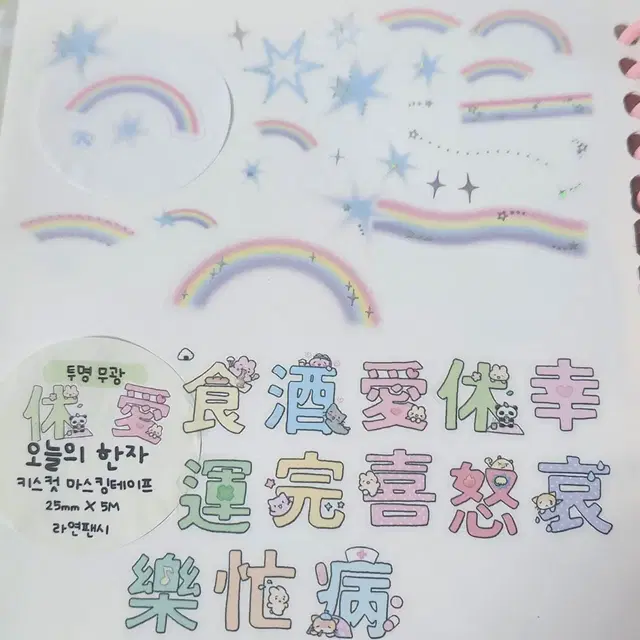 투명 무광
休 愛
오늘의 한자
키스컷 마스킹테이프
25mm X 5M
라연팬시
食 酒 愛 休 幸
運 完 喜 怒 哀
樂 忙 病